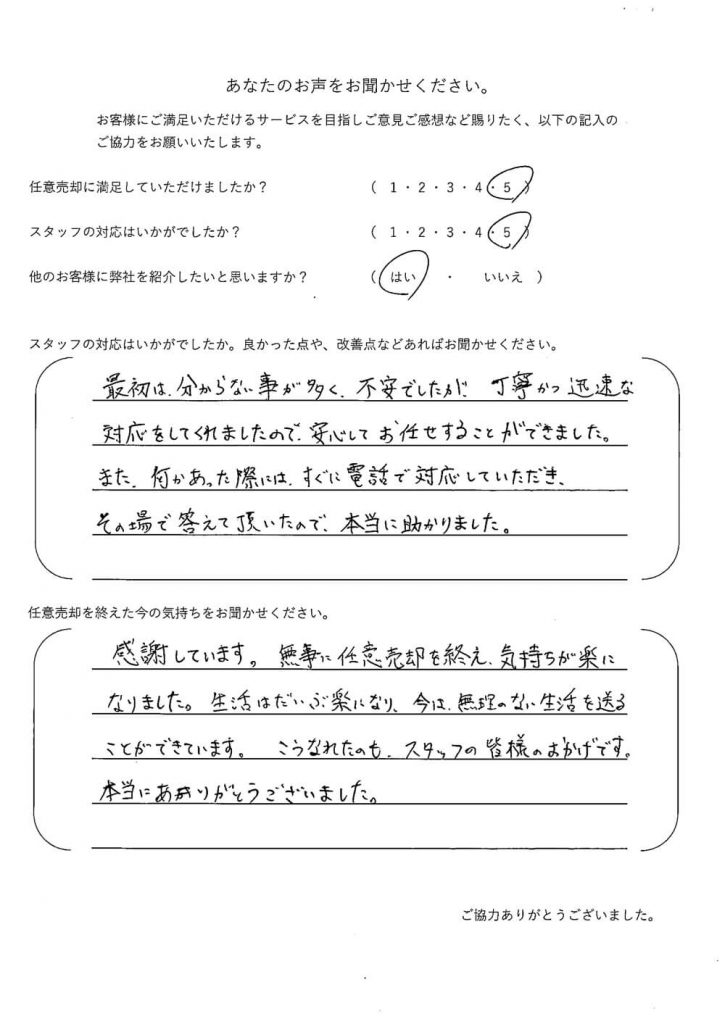 あなたのお声をお聞かせください。
お客様にご満足いただけるサービスを目指しご意見ご感想など賜りたく、以下の記入の
ご協力をお願いいたします。
任意売却に満足していただけましたか？ （ 1・2・3・4・5 ）
スタッフの対応はいかがでしたか？ （ 1・2・3・4・5 ）
他のお客様に弊社を紹介したいと思いますか？ （ はい ・ いいえ ）
スタッフの対応はいかがでしたか。良かった点や、改善点などあればお聞かせください。
最初は、分からない事が多く、不安でしたが、丁寧かつ迅速な
対応をしてくれましたので、安心してお任せすることができました。
また、何かあった際には、すぐに電話で対応していただき、
その場で答えて頂いたので、本当に助かりました。
任意売却を終えた今の気持ちをお聞かせください。
感謝しています。無事に任意売却を終え、気持ちが楽に
なりました。生活はだいぶ楽になり、今は、無理のない生活を送る
ことができています。こうなれたのも、スタッフの皆様のおかげです。
本当にありがとうございました。
ご協力ありがとうございました。